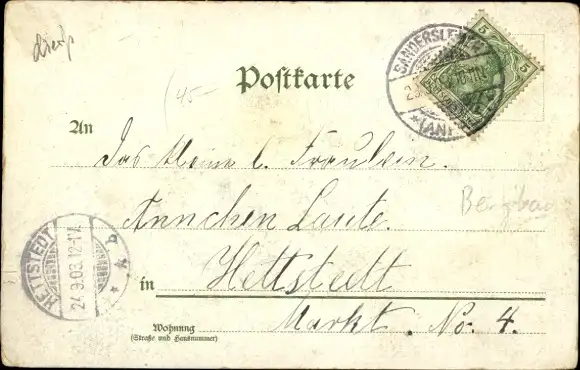 Postkarte
45-
SANDERSLEBEN
5 5
(ANH
An
Das kleine l. Fräulein.
Annchen Laute.
Bergbau
HETTSTEDT
24.9.03.12-1V.
in Hettstedt
Markt. No. 4.
Wohnung
(Straße und Hausnummer)